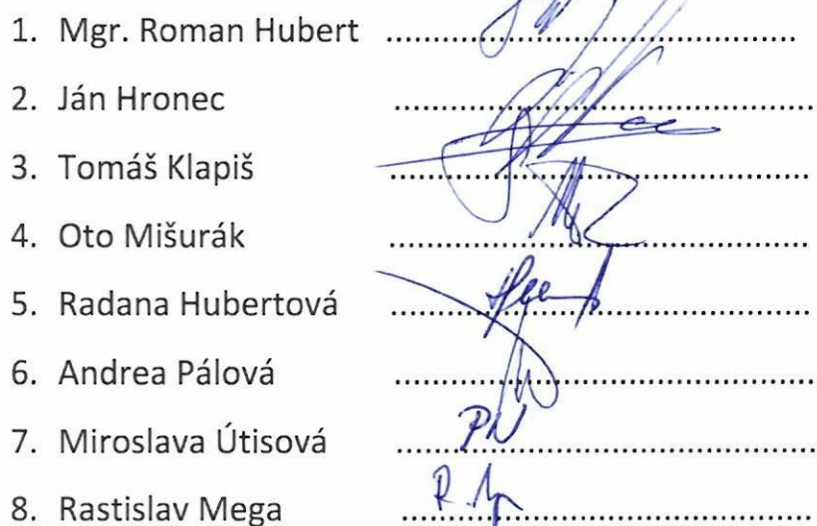 1. Mgr. Roman Hubert ................................................
2. Ján Hronec ................................................
3. Tomáš Klapiš ................................................
4. Oto Mišurák ................................................
5. Radana Hubertová ................................................
6. Andrea Pálová ................................................
7. Miroslava Útisová PN ................................................
8. Rastislav Mega ................................................